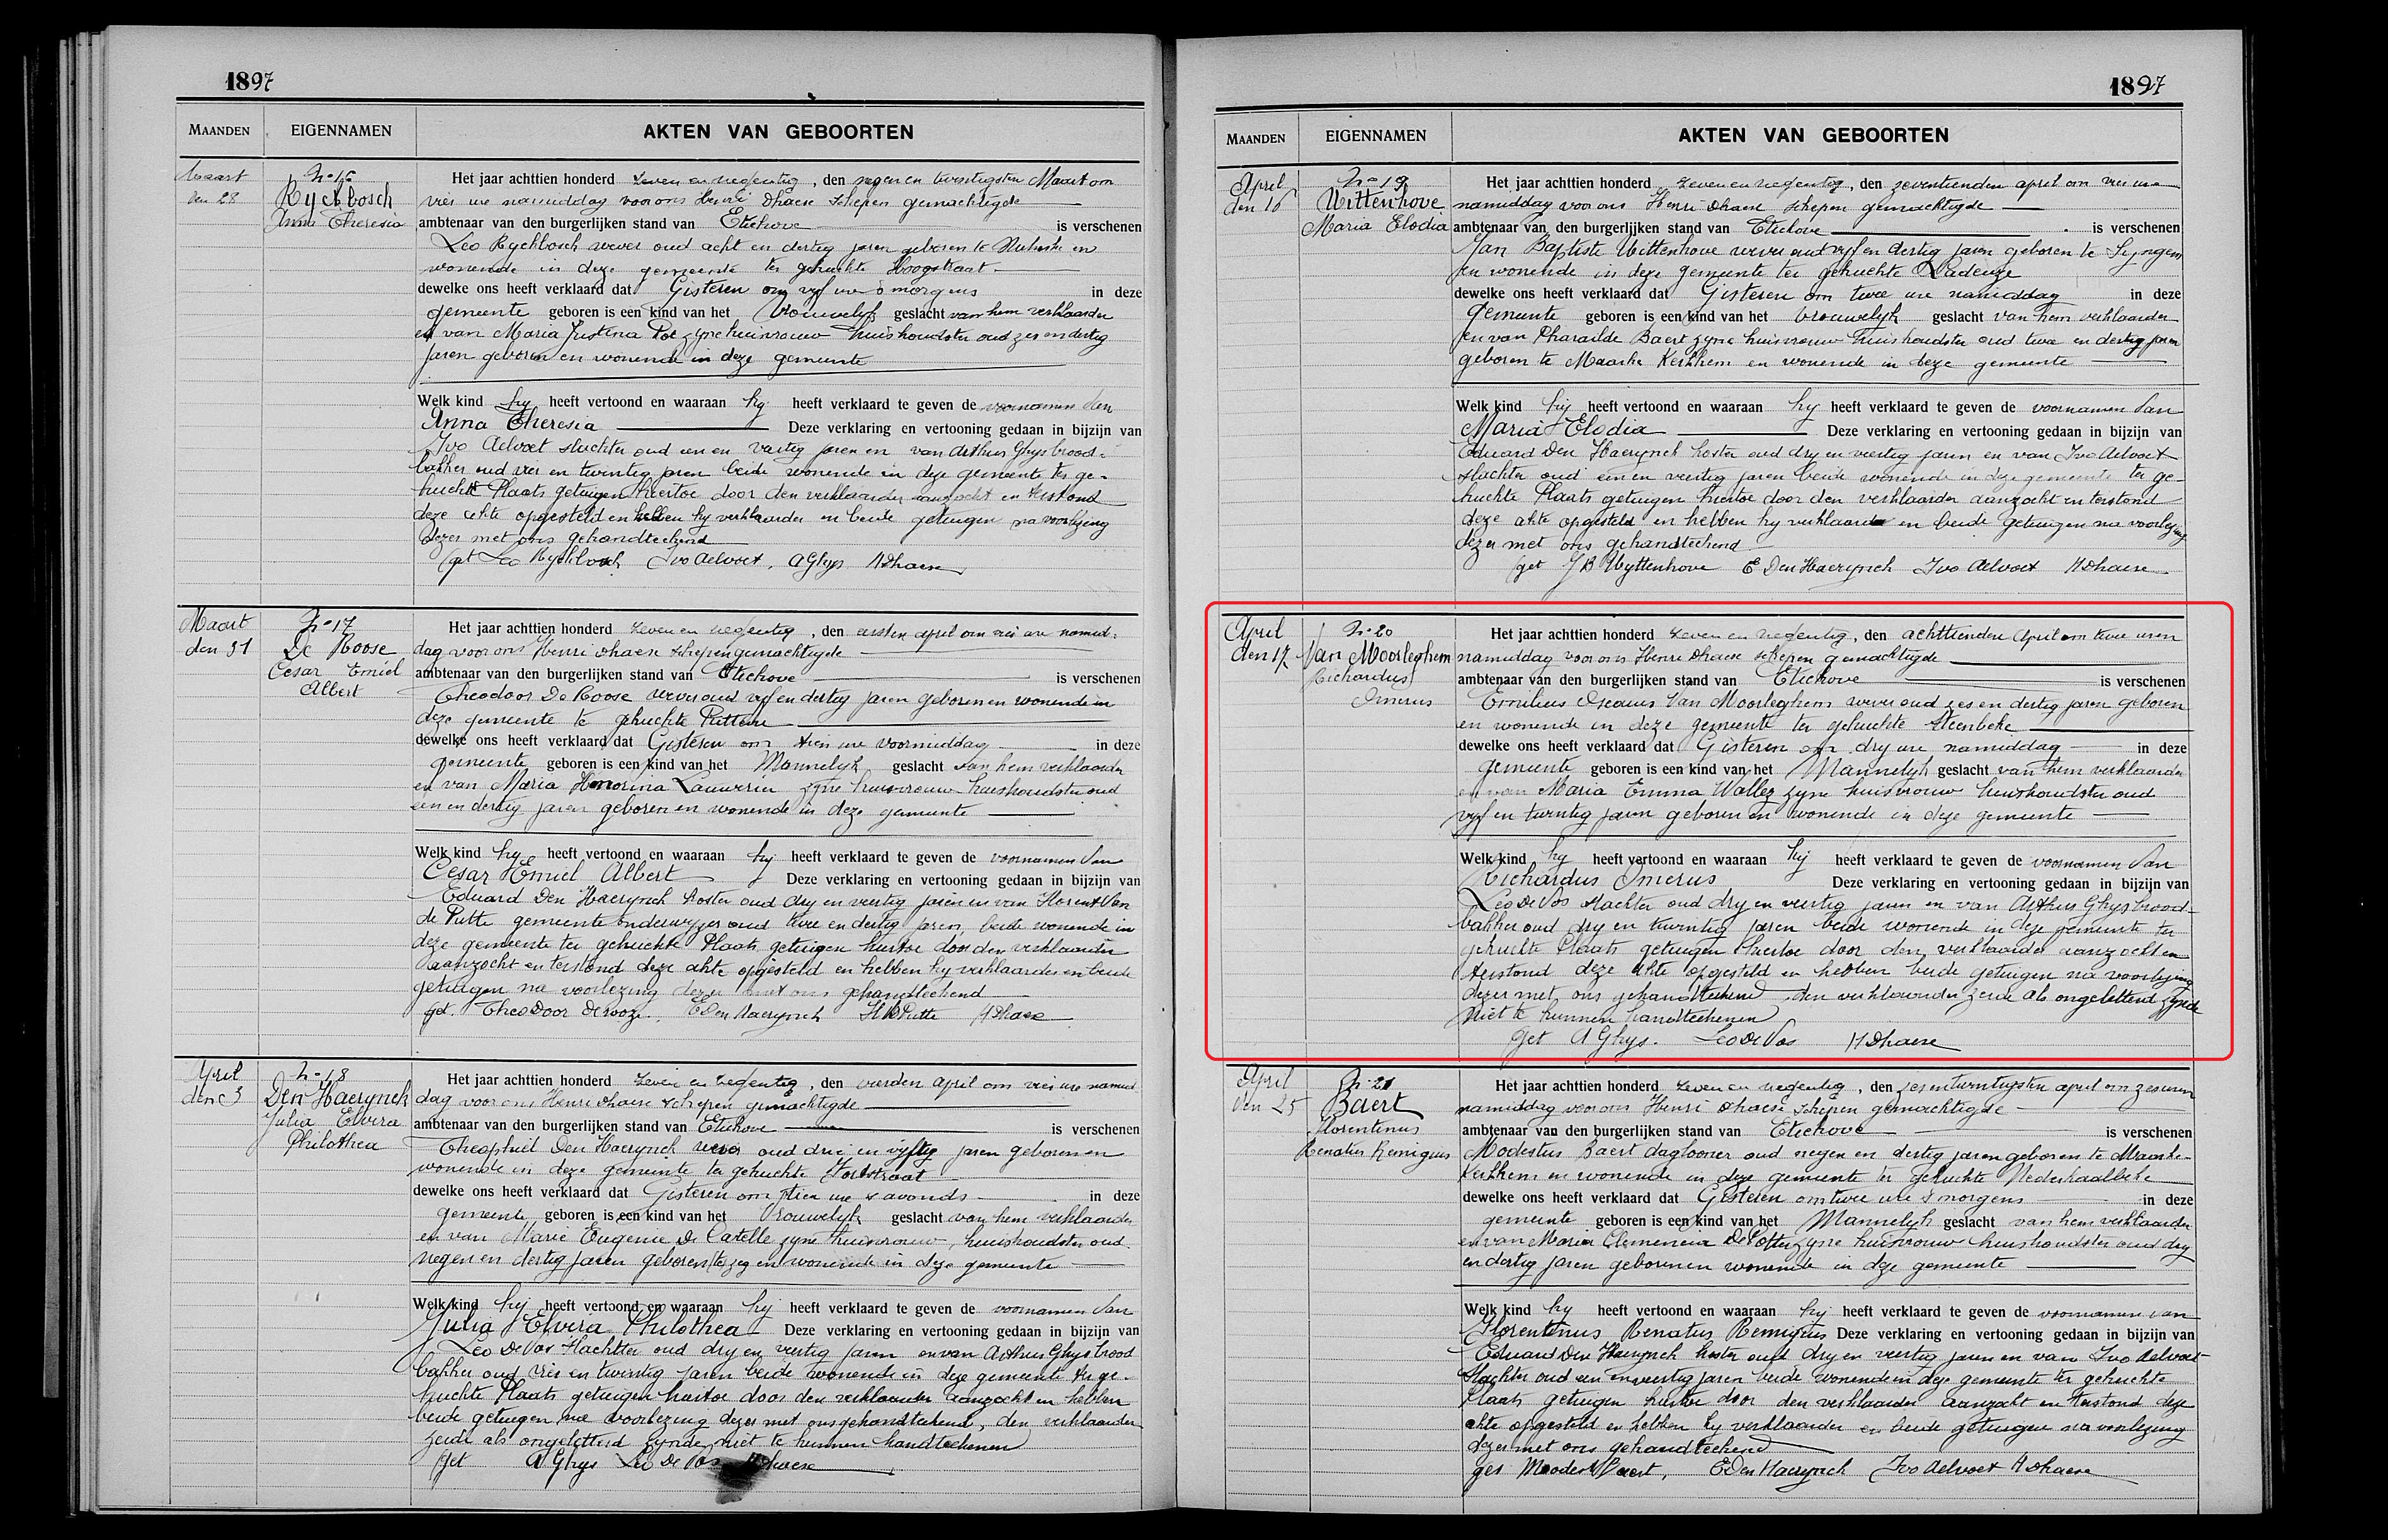 1897
MAANDEN EIGENNAMEN AKTEN VAN GEBOORTEN
Maart den 28
N° 16
Rychbosch
Anna Theresia
Het jaar achttien honderd zeven en negentig, den negen en twintigsten Maart om
vier ure namiddag voor ons Henri Dhaese schepen gemachtigde
ambtenaar van den burgerlijken stand van Etichove is verschenen
Leo Rychbosch wever oud acht en dertig jaren geboren te Nukerke en
wonende in deze gemeente ter gehuchte Hoogstraat
dewelke ons heeft verklaard dat Gisteren om vyf ure s morgens in deze
gemeente geboren is een kind van het Vrouwelyk geslacht van hem verklaarder
en van Maria Justina Pot zyne huisvrouw huishoudster oud zes en dertig
jaren geboren en wonende in deze gemeente
Welk kind hy heeft vertoond en waaraan hy heeft verklaard te geven de voornamen van
Anna Theresia Deze verklaring en vertooning gedaan in bijzijn van
Ivo Aelvoet slachter oud een en veertig jaren en van Arthur Ghys brood-
bakker oud vier en twintig jaren beide wonende in deze gemeente ter ge-
huchte Plaats getuigen hiertoe door den verklaarder aanzocht en terstond
deze akte opgesteld en hebben hy verklaarder en beide getuigen na voorlezing
dezer met ons gehandteekend
get Leo Rychbosch Ivo Aelvoet, A Ghys HDhaese
Maart
den 31
N° 17
De Roose
Cesar Emiel
Albert
Het jaar achttien honderd zeven en negentig, den eersten april om vier ure namid-
dag voor ons Henri Dhaese schepen gemachtigde
ambtenaar van den burgerlijken stand van Etichove is verschenen
Theodoor De Roose wever oud vyf en dertig jaren geboren en wonende in
deze gemeente te gehuchte Puttene
dewelke ons heeft verklaard dat Gisteren om tien ure voormiddag in deze
gemeente geboren is een kind van het Mannelyk geslacht van hem verklaarder
en van Maria Honorina Lauwerier zyne huisvrouw huishoudster oud
een en dertig jaren geboren en wonende in deze gemeente
Welk kind hy heeft vertoond en waaraan hy heeft verklaard te geven de voornamen van
Cesar Emiel Albert Deze verklaring en vertooning gedaan in bijzijn van
Eduard Den Haerynck koster oud dry en veertig jaren en van Florent Van
de Putte gemeente onderwyzer oud twee en dertig jaren, beide wonende in
deze gemeente ter gehuchte Plaats getuigen hiertoe door den verklaarder
aanzocht en terstond deze akte opgesteld en hebben hy verklaarder en beide
getuigen na voorlezing dezer met ons gehandteekend
get. Theodoor Derooze. EDenHaerynck Dhaese
April
den 3
N° 18
Den Haerynck
Julia Elvira
Philothea
Het jaar achttien honderd zeven en negentig, den vierden april om vier ure namid
dag voor ons Henri Dhaese schepen gemachtigde
ambtenaar van den burgerlijken stand van Etichove is verschenen
Theophiel Den Haerynck wever oud drie en vyftig jaren geboren en
wonende in deze gemeente ter gehuchte
dewelke ons heeft verklaard dat Gisteren om tien ure s avonds in deze
gemeente geboren is een kind van het Vrouwelyk geslacht van hem verklaarder
en van Marie Eugenie De Catelle zyne huisvrouw, huishoudster oud
negen en dertig jaren geboren en wonende in deze gemeente
Welk kind hy heeft vertoond en waaraan hy heeft verklaard te geven de voornamen van
Julia Elvira Philothea Deze verklaring en vertooning gedaan in bijzijn van
Leo DeVos slachter oud dry en veertig jaren en van Arthur Ghys brood
bakker oud vier en twintig jaren beide wonende in deze gemeente ter ge-
huchte Plaats getuigen hiertoe door den verklaarder aanzocht en hebben
beide getuigen na voorlezing dezer met ons gehandteekend, den verklaarder
zeide als ongeletterd zynde niet te kunnen handteekenen
get A Ghys Leo De Vos Dhaese
1897
MAANDEN EIGENNAMEN AKTEN VAN GEBOORTEN
April
den 16
N° 19
Uittenhove
Maria Elodia
Het jaar achttien honderd zeven en negentig, den zeventienden april om vier ure
namiddag voor ons Henri Dhaese schepen gemachtigde
ambtenaar van den burgerlijken stand van Etichove is verschenen
Jan Baptiste Uittenhove wever oud vyf en dertig jaren geboren te Syngem
en wonende in deze gemeente ter gehuchte Ladeuze
dewelke ons heeft verklaard dat Gisteren om twee ure namiddag in deze
gemeente geboren is een kind van het Vrouwelyk geslacht van hem verklaarder
en van Pharailde Baert zyne huisvrouw huishoudster oud twee en dertig jaren
geboren te Maarke Kerkhem en wonende in deze gemeente
Welk kind hy heeft vertoond en waaraan hy heeft verklaard te geven de voornamen van
Maria Elodia Deze verklaring en vertooning gedaan in bijzijn van
Eduard Den Haerynck koster oud dry en veertig jaren en van Ivo Aelvoet
slachter oud een en veertig jaren beide wonende in deze gemeente ter ge-
huchte Plaats getuigen hiertoe door den verklaarder aanzocht en terstond
deze akte opgesteld en hebben hy verklaarder en beide getuigen na voorlezing
dezer met ons gehandteekend
get JB Uyttenhove E Den Haerynck Ivo Aelvoet HDhaese
April
den 17
N° 20
Van Moorleghem
Richardus
Omerus
Het jaar achttien honderd zeven en negentig, den achttienden April om twee uren
namiddag voor ons Henri Dhaese schepen gemachtigde
ambtenaar van den burgerlijken stand van Etichove is verschenen
Emilius Oscarus Van Moorleghem wever oud zes en dertig jaren geboren
en wonende in deze gemeente ter gehuchte Steenbeke
dewelke ons heeft verklaard dat Gisteren om dry ure namiddag in deze
gemeente geboren is een kind van het Mannelyk geslacht van hem verklaarder
en van Maria Emma Wallez zyne huisvrouw huishoudster oud
vyf en twintig jaren geboren en wonende in deze gemeente
Welk kind hy heeft vertoond en waaraan hy heeft verklaard te geven de voornamen van
Richardus Omerus Deze verklaring en vertooning gedaan in bijzijn van
Leo DeVos slachter oud dry en veertig jaren en van Arthur Ghys brood-
bakker oud dry en twintig jaren beide wonende in deze gemeente ter
gehuchte Plaats getuigen hiertoe door den verklaarder aanzocht en
terstond deze akte opgesteld en hebben beide getuigen na voorlezing
dezer met ons gehandteekend, den verklaarder zeide als ongeletterd zynde
niet te kunnen handteekenen
get A Ghys. Leo De Vos HDhaese
April
den 25
N° 21
Baert
Florentinus
Renatus Remigius
Het jaar achttien honderd zeven en negentig, den zes en twintigsten april om zes uren
namiddag voor ons Henri Dhaese schepen gemachtigde
ambtenaar van den burgerlijken stand van Etichove is verschenen
Modestus Baert daglooner oud negen en dertig jaren geboren te Maarke-
Kerkhem en wonende in deze gemeente ter gehuchte Nederhaalbeke
dewelke ons heeft verklaard dat Gisteren om twee ure s morgens in deze
gemeente geboren is een kind van het Mannelyk geslacht van hem verklaarder
en van Maria Clemencia DePotter zyne huisvrouw huishoudster oud dry
en dertig jaren geboren en wonende in deze gemeente
Welk kind hy heeft vertoond en waaraan hy heeft verklaard te geven de voornamen van
Florentinus Renatus Remigius Deze verklaring en vertooning gedaan in bijzijn van
Eduard Den Haerynck koster oud dry en veertig jaren en van Ivo Aelvoet
slachter oud een en veertig jaren beide wonende in deze gemeente ter gehuchte
Plaats getuigen hiertoe door den verklaarder aanzocht en terstond deze
akte opgesteld en hebben hy verklaarder en beide getuigen na voorlezing
dezer met ons gehandteekend
get Modest Baert, EDenHaerynck Ivo Aelvoet HDhaese